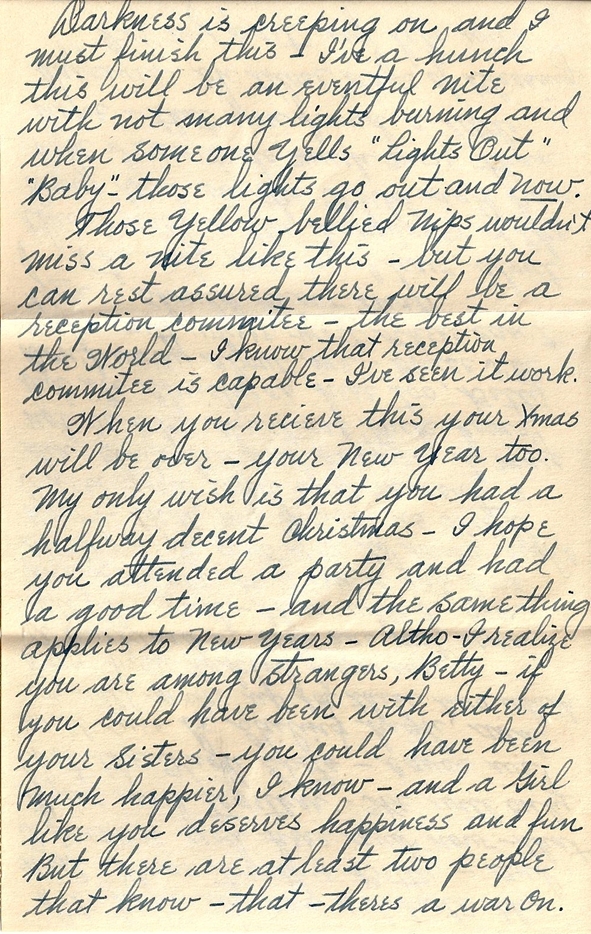 Darkness is creeping on and I
must finish this - I've a hunch
this will be an eventful nite
with not many lights burning and
when someone yells "Lights Out"
"Baby" - those lights go out and now.
Those Yellow bellied Nips wouldn't
miss a nite like this - but you
can rest assured there will be a
reception commitee - the best in
the World - I know that reception
commitee is capable - I've seen it work.
When you recieve this your Xmas
will be over - your New Year too.
My only wish is that you had a
halfway decent Christmas - I hope
you attended a party and had
a good time - and the same thing
applies to New Years - Altho - I realize
you are among strangers, Betty - if
you could have been with either of
your Sisters - you could have been
much happier, I know - and a Girl
like you deserves happiness and fun
But there are at least two people
that know - that - theres a war on.